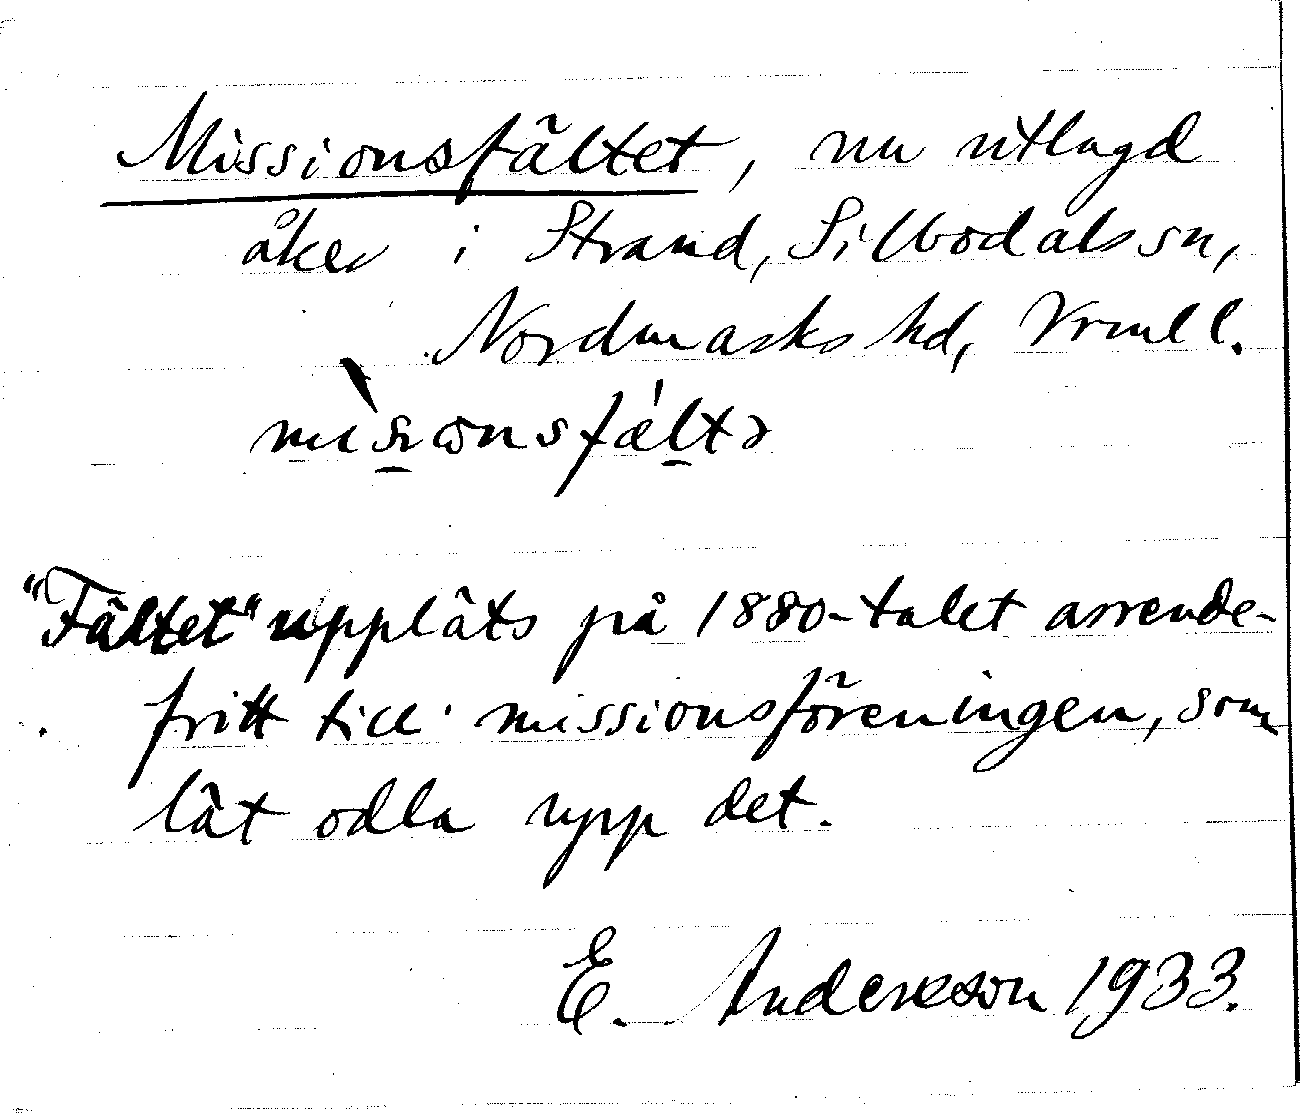 Missionsfältet, nu utlagd
åker i Strand, Silbodals sn,
Nordmarks hd, Vrml l.
"Fältet" uppläts på 1880-talet arrende-
fritt till missionsföreningen, som
lät odla upp det.
E. Andersson 1933.